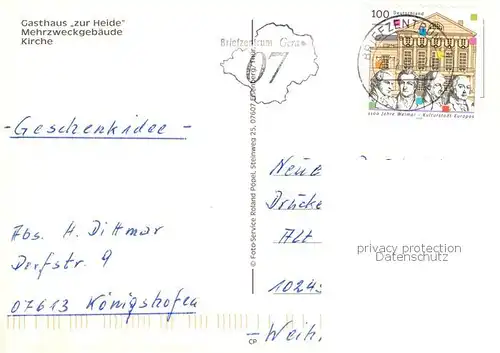 Gasthaus „zur Heide"
Mehrzweckgebäude
Kirche
Briefzentrum Gera
07
100 Deutschland
BRIEFZENTRUM
1100 Jahre Weimar - Kulturstadt Europas
- Geschenkidee -
Abs. H. Dittmar
Dorfstr. 9
07613 Königshofen
© Foto-Service Roland Popel, Steinweg 25, 07607 Eisenberg/Thür.
CP
Neue
Drücke
Alt
1024
- Weih
privacy protection
Datenschutz